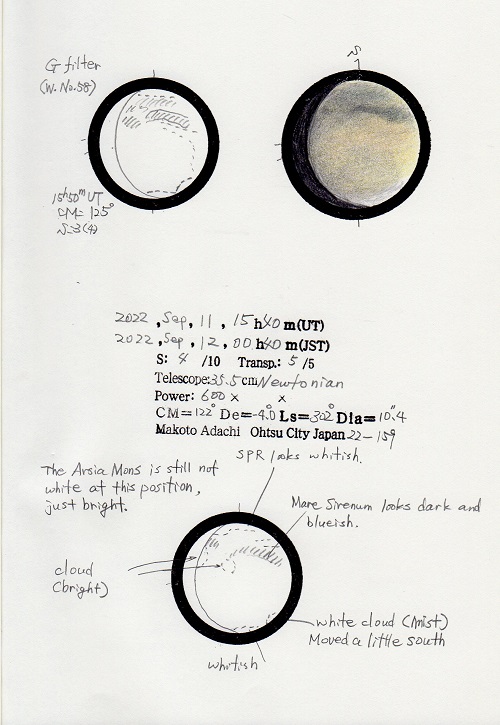 G filter
(W. No.58)
S
15h50m UT
CM= 125°
S=3(4)
2022, Sep, 11, 15h40m(UT)
2022, Sep, 12, 00h40m(JST)
S: 4 /10 Transp.: 5 /5
Telescope: 35.5cm Newtonian
Power: 600 × ×
CM=122° De=-4.0° Ls=302° Dia=10".4
Makoto Adachi Ohtsu City Japan 22-159
SPR looks whitish.
The Arsia Mons is still not
white at this position,
just bright.
Mare Sirenum looks dark and
blueish.
cloud
(bright)
white cloud (mist)
Moved a little south
whitish